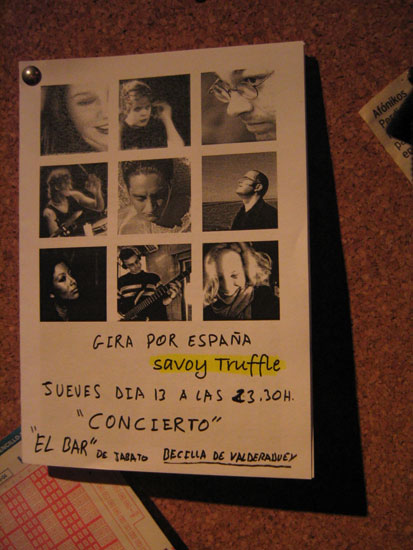 GIRA POR ESPAÑA
savoy Truffle
JUEVES DIA 13 A LAS 23.30H.
"CONCIERTO"
"EL BAR" DE TABATO BECILLA DE VALDERADUEY
Afónikos